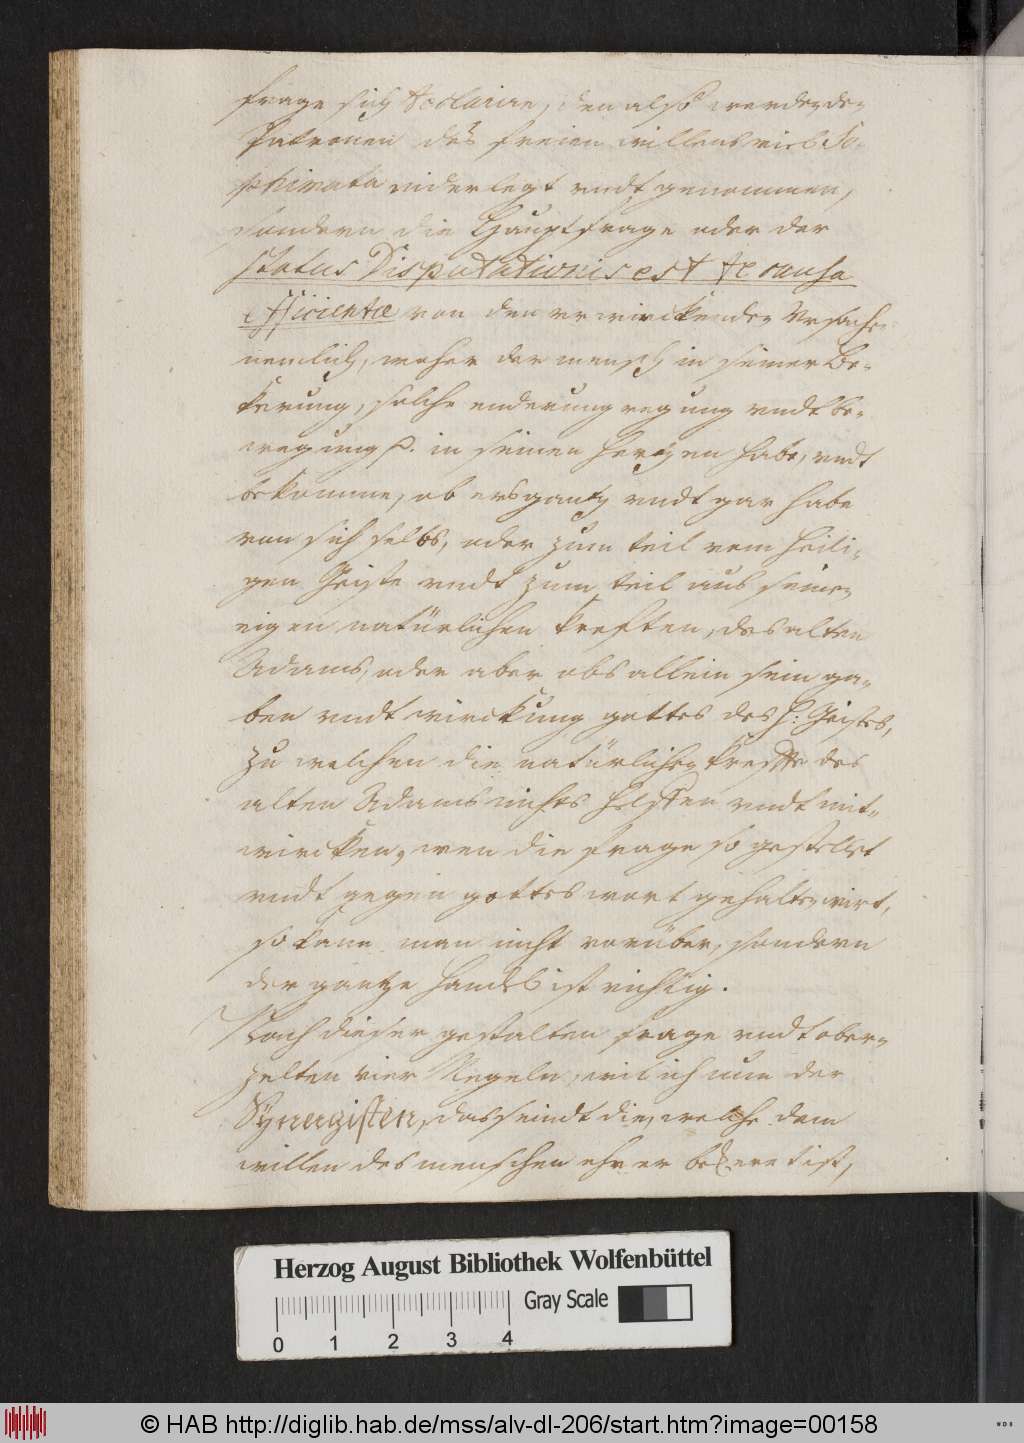 frage sich declarire, den also werden der
Patronen des freien willens viel So-
phismata niderlegt undt genommen,
sondern die Hauptfrage oder der
status Disputationis est de causa
efficiente von den erwirckenden Ursachen
nemlich, woher der mensch in seiner Be-
kerung, solche enderung regung undt be-
wegung in seinen herzen habe, undt
bekomme, ob ers gantz undt gar habe
von sich selbs, oder zum teil vom heili-
gen Geiste undt zum teil aus seinen
eigen natürlichen kreften, des alten
Adams, oder aber obs allein sein ga-
ben undt wirckung gottes des H: Geistes,
zu welchen die natürlichen kreffte des
alten Adams nichts helffen undt mit-
wircken, wen die frage so gestellet
undt gegen gottes wort gehalten wirt,
so kann man nicht vorüber, sondern
der gantze handel ist richtig.
Nach dieser gestalten frage undt ober-
zelten vier Regeln, wil ich nun der
Synergisten, das seindt die, welche dem
willen des menschen ehr er bekeret ist,
Herzog August Bibliothek Wolfenbüttel
Gray Scale
0 1 2 3 4
© HAB http://diglib.hab.de/mss/alv-dl-206/start.htm?image=00158